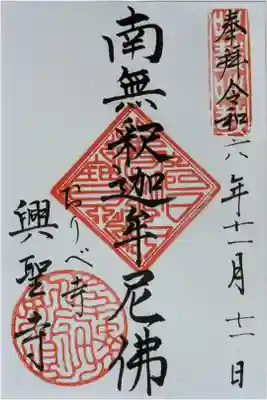 奉拝 令和六年十一月十一日
南無釈迦牟尼佛
おりべ寺
興聖寺